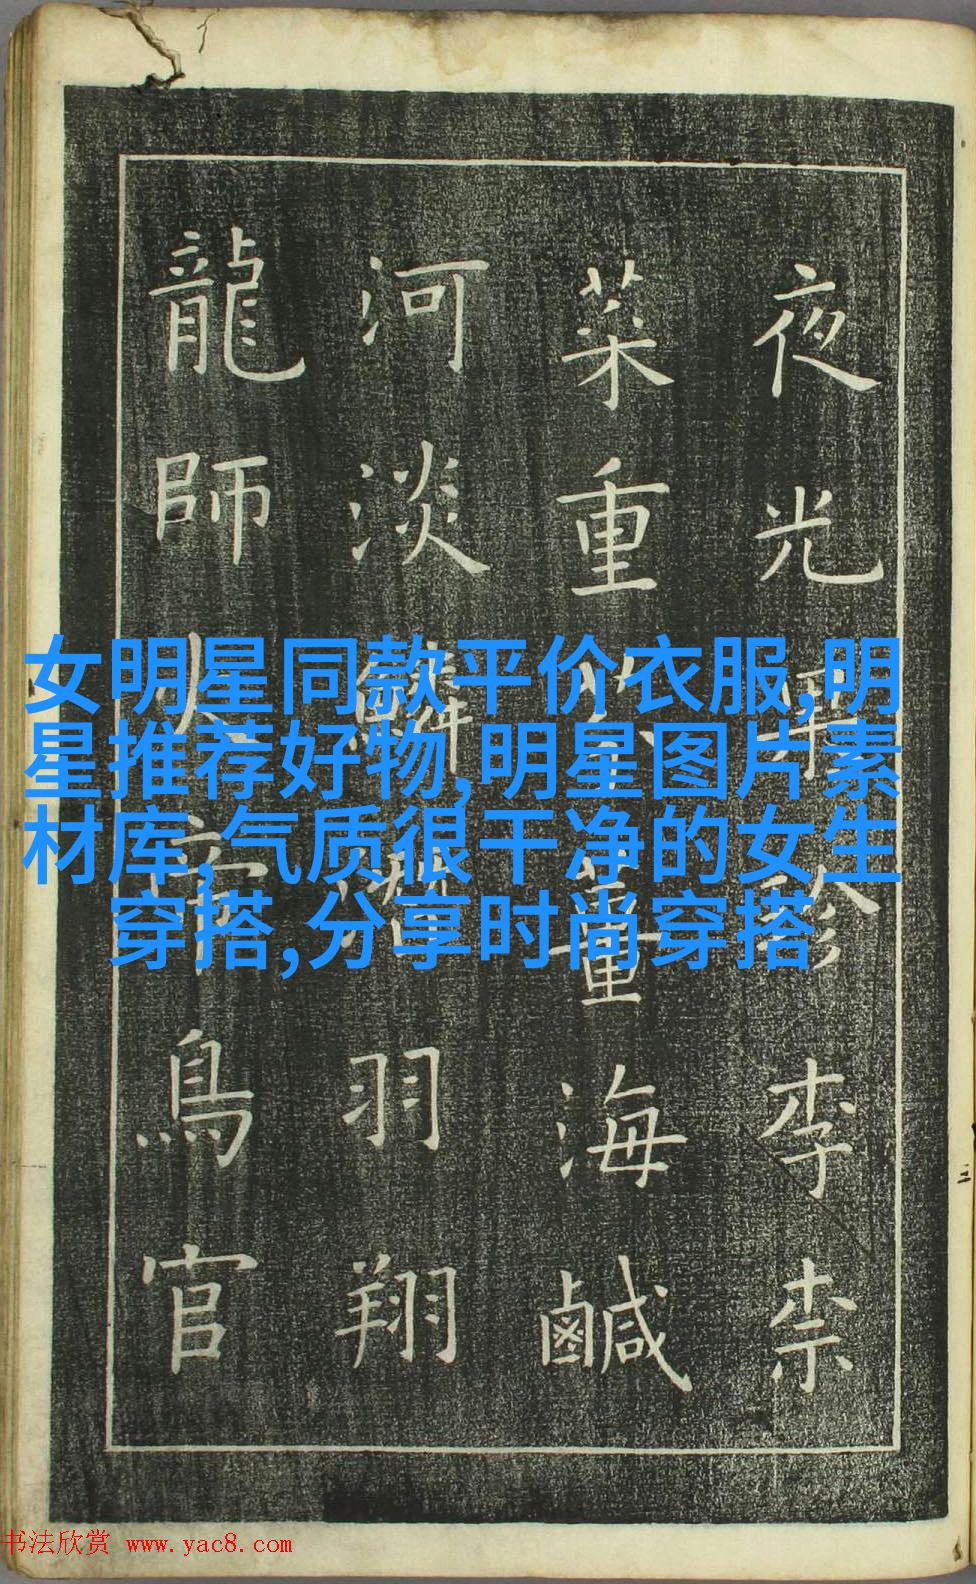 夜光果珍李柰
菜重芥薑海鹹
河淡鱗潛羽翔
龍師火帝鳥官
女明星同款平价衣服,明
星推荐好物,明星图片素
材库,气质很干净的女生
穿搭,分享时尚穿搭
书法欣赏 www.yac8.com